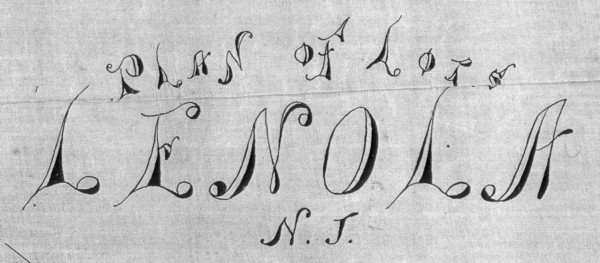 PLAN OF LOTS
LENOLA
N.J.